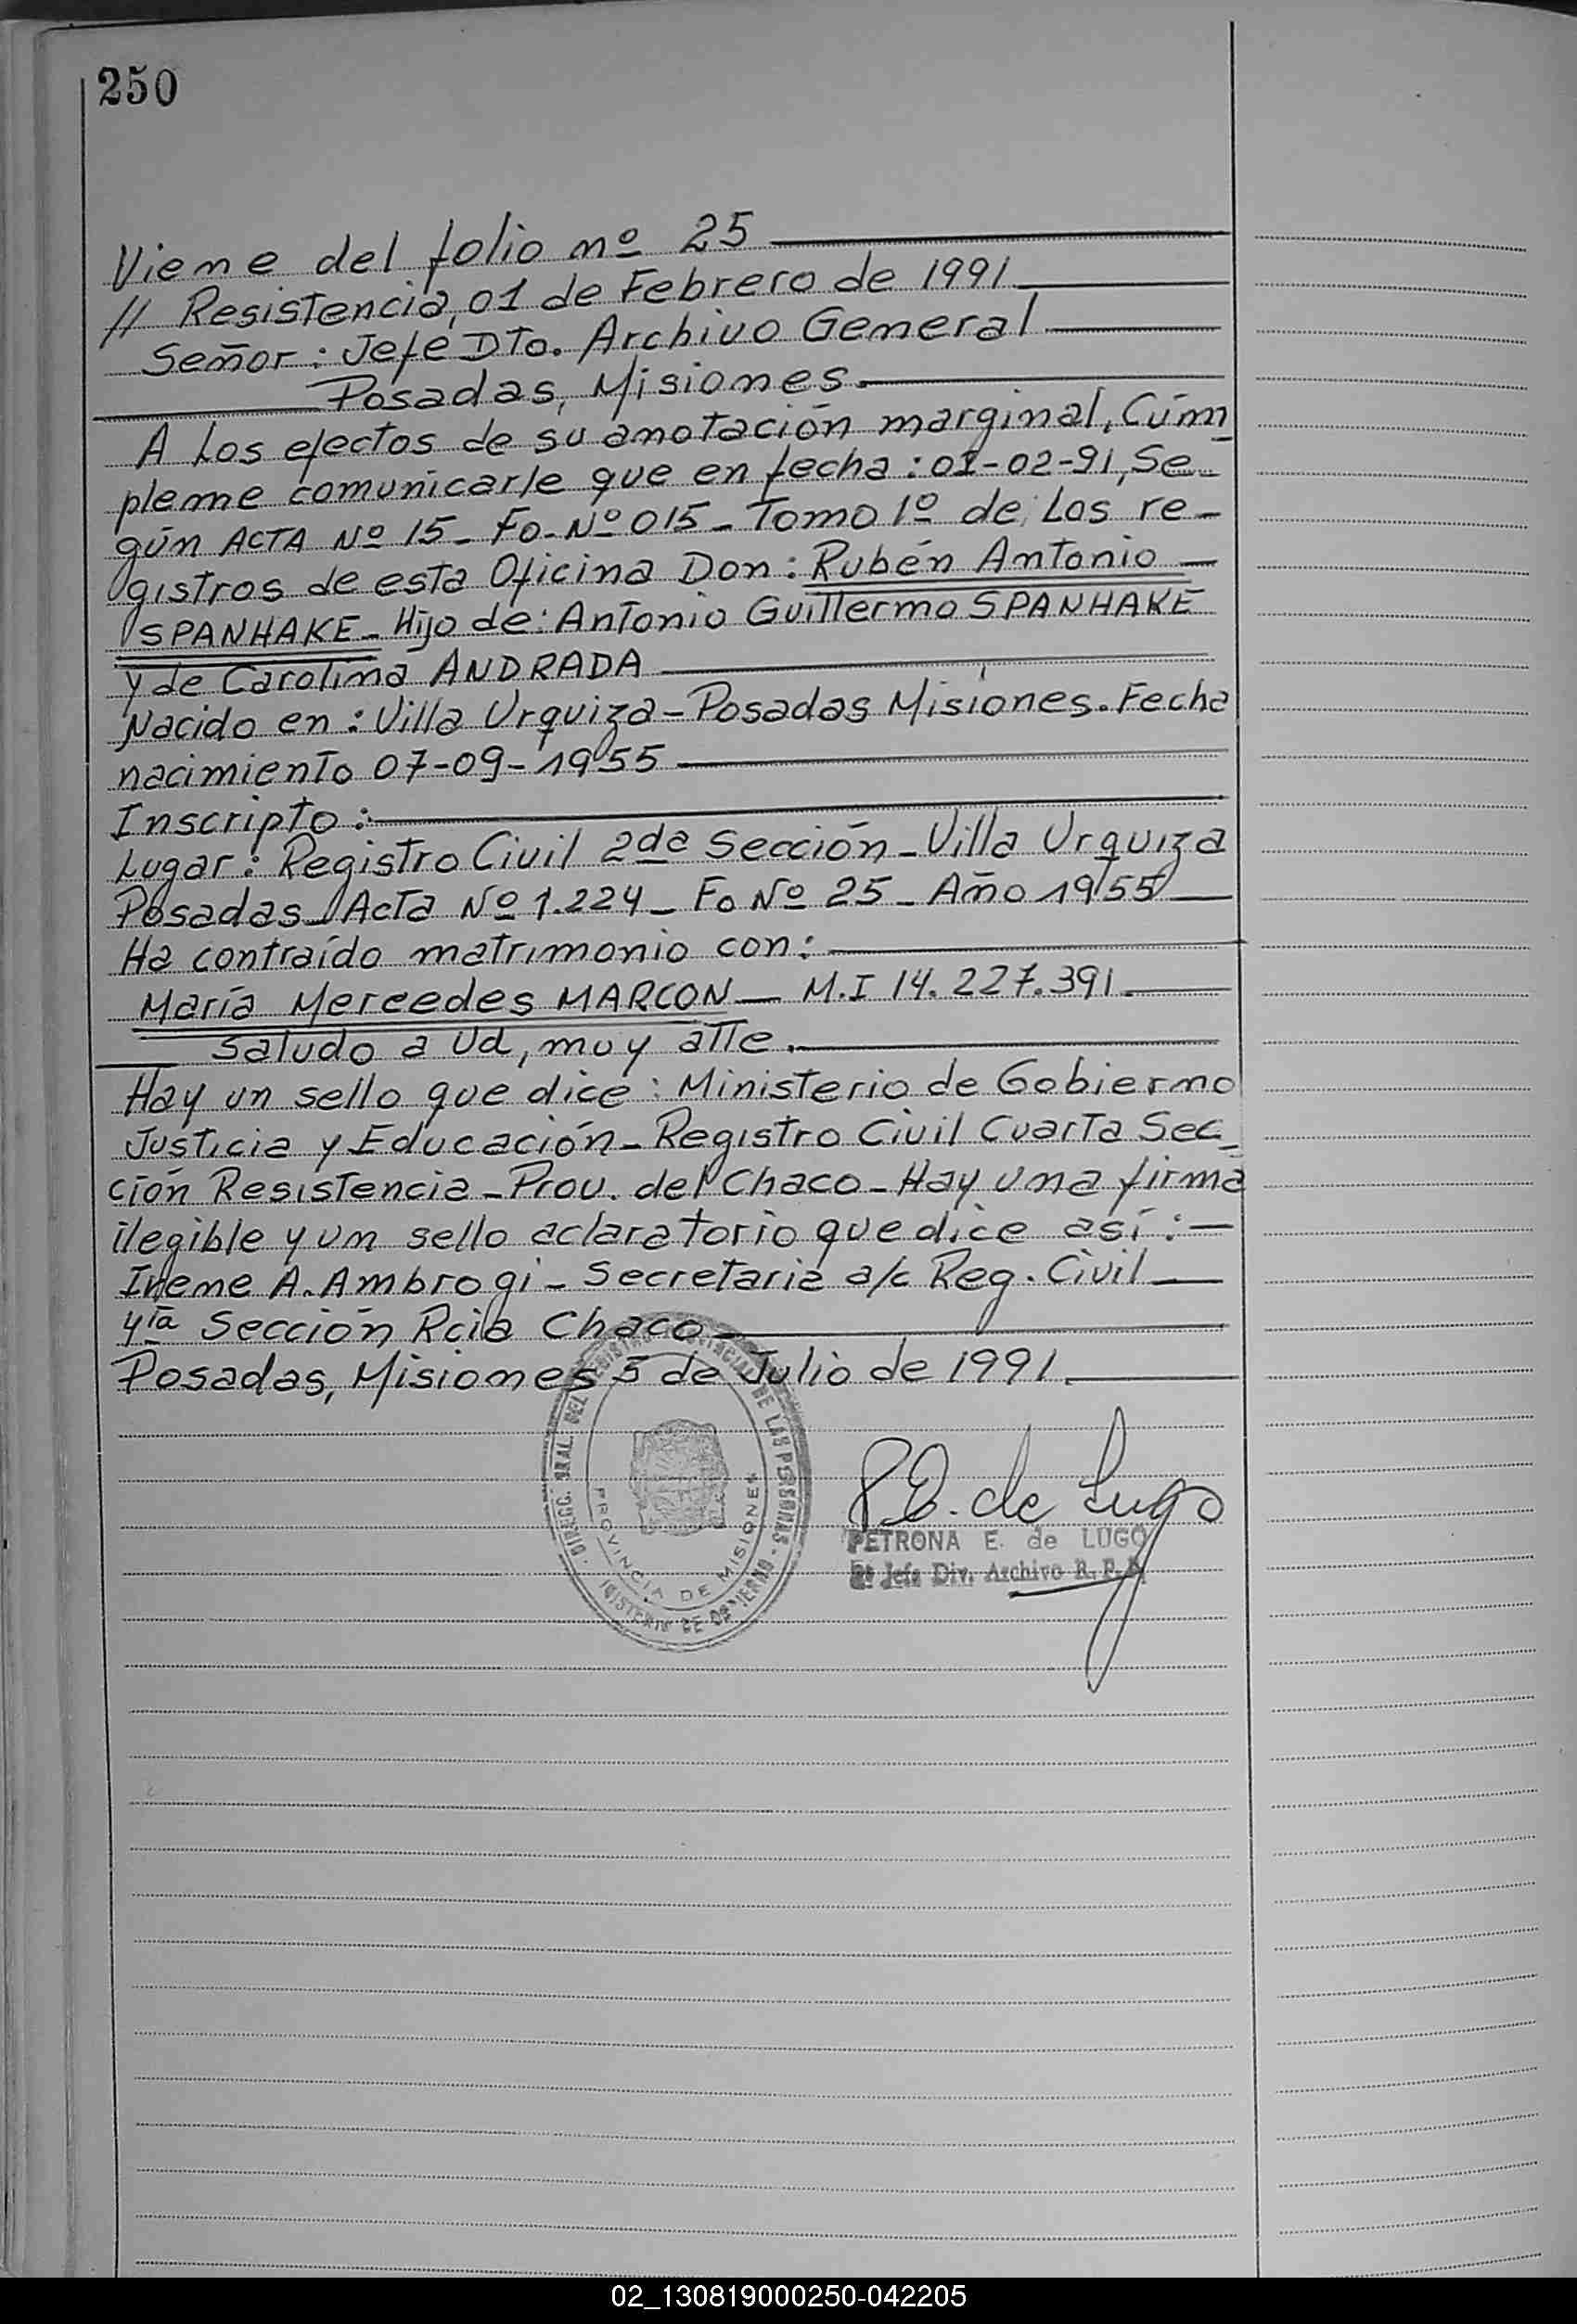 250
Viene del folio nº 25
// Resistencia, 01 de Febrero de 1991
Señor: Jefe DTo. Archivo General
Posadas, Misiones.
A Los efectos de su anotación marginal, Cúm
pleme comunicarle que en fecha: 01-02-91, Se-
gún ACTA Nº 15 - Fo. Nº 015 - Tomo 1º de Los re-
gistros de esta Oficina Don: Rubén Antonio
SPANHAKE - Hijo de: Antonio Guillermo SPANHAKE
y de Carolina ANDRADA
Nacido en: Villa Urquiza - Posadas Misiones. Fecha
nacimiento 07-09-1955
Inscripto:
Lugar: Registro Civil 2da Sección - Villa Urquiza
Posadas - Acta Nº 1.224 - Fo Nº 25 - Año 1955
Ha contraído matrimonio con:
María Mercedes MARCON - M.I 14.227.391.
Saludo a Ud, muy atte.
Hay un sello que dice: Ministerio de Gobierno
Justicia y Educación - Registro Civil Cuarta Sec-
ción Resistencia - Prov. del Chaco - Hay una firma
ilegible y un sello aclaratorio que dice así:
Irene A. Ambrogi - Secretaria a/c Reg. Civil
4ta Sección Rcia Chaco
Posadas, Misiones 5 de Julio de 1991.
P.E. de Lugo
PETRONA E. de LUGO
Jefe Div. Archivo R. P. P.
PROVINCIA DE MISIONES
02_130819000250-042205